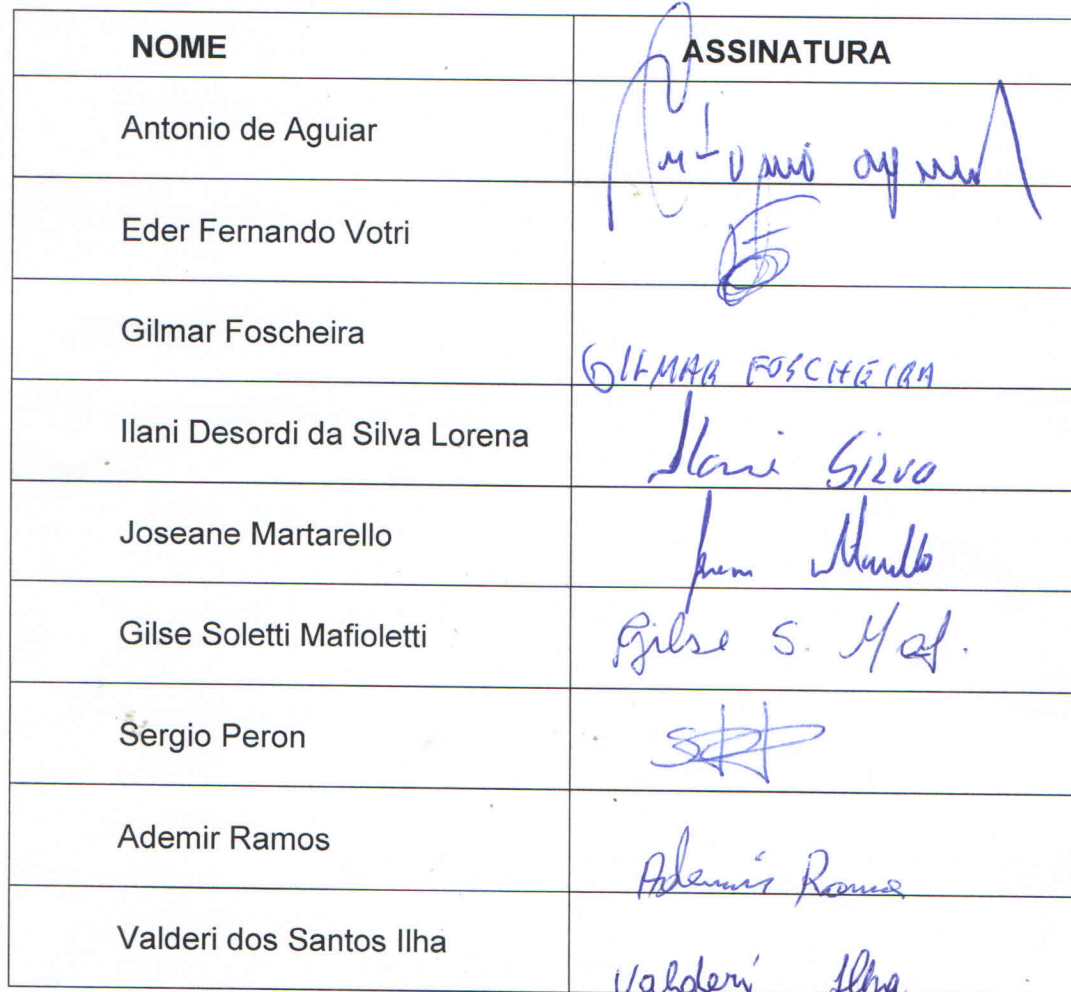 NOME ASSINATURA
Antonio de Aguiar
Eder Fernando Votri
Gilmar Foscheira GILMAR FOSCHEIRA
Ilani Desordi da Silva Lorena Ilani Silva
Joseane Martarello
Gilse Soletti Mafioletti Gilse S. Maf.
Sergio Peron
Ademir Ramos Ademir Ramos
Valderi dos Santos Ilha Valderi Ilha